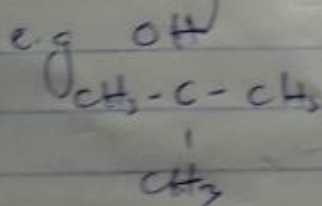 e.g OH
CH3-C-CH3
|
CH3